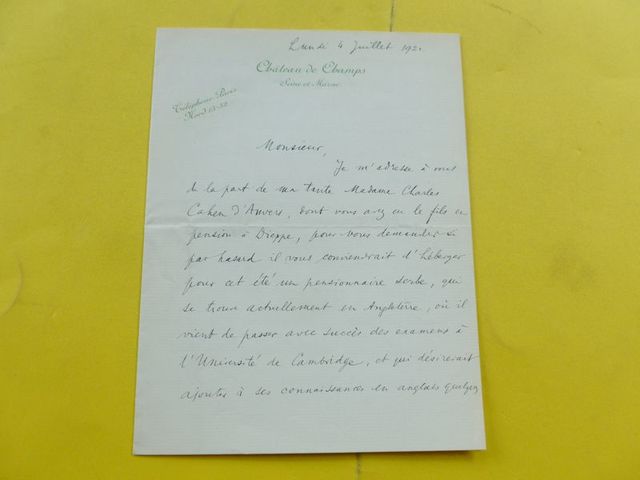 Lundi 4 Juillet 1921
Château de Champs
Seine et Marne
Téléphone Paris
Nord 13-52
Monsieur,
Je m'adresse à vous
de la part de ma tante Madame Charles
Cahen d'Anvers, dont vous avez eu le fils en
pension à Dieppe, pour vous demander si
par hasard il vous conviendrait d'héberger
pour cet été un pensionnaire serbe, qui
se trouve actuellement en Angleterre, où il
vient de passer avec succès des examens à
l'Université de Cambridge, et qui désirerait
ajouter à ses connaissances en anglais quelques